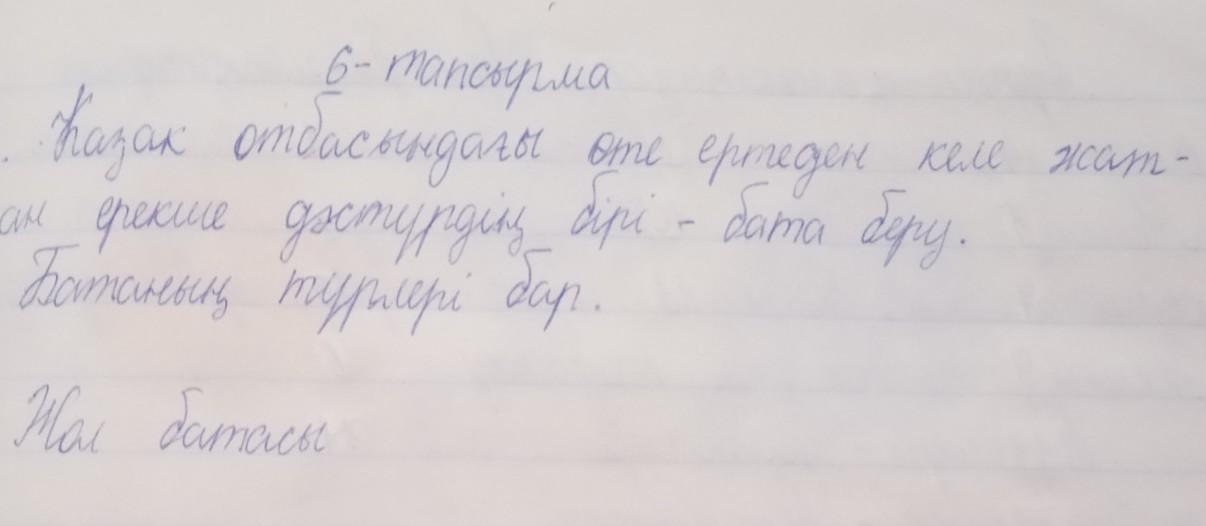 6-тапсырма
. Қазақ отбасындағы өте ертеден келе жат-
ан ерекше дәстүрдің бірі - бата беру.
Батаның түрлері бар.
Жол батасы